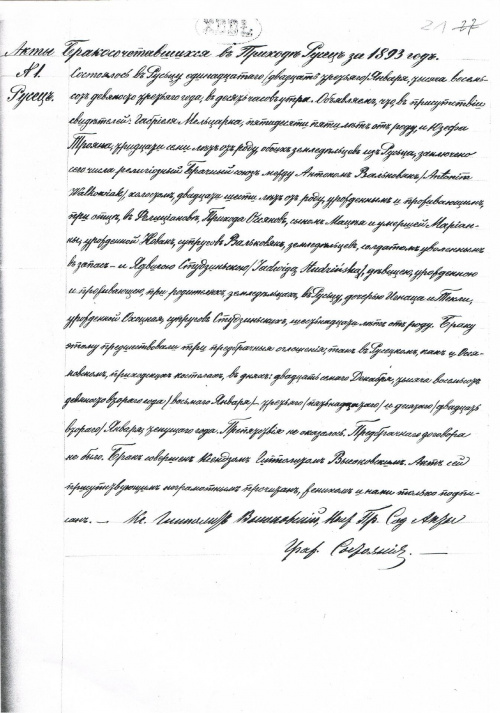 21 22
Акты Бракосочетавшихся въ Приходѣ Русецъ за 1893 годъ.
N 1.
Русецъ.
Состоялось въ Русьцу одинадцатаго /двадцать третьяго/ Января, тысяча восемь-
сотъ девяносто третьяго года, въ десять часовъ утра. Объявляемъ, что въ присутствіи
свидѣтелей: Габріеля Мельцарка, пятидесяти пяти лѣтъ отъ роду, и Юзефа
Трояна, тридцати семи лѣтъ отъ роду, обоихъ земледѣльцевъ изъ Русьца, заключено
сего числа религіозный брачный союзъ между Антономъ Вальковякъ /Antonim
Walkowiak/, холостымъ, двадцати шести лѣтъ отъ роду, урожденнымъ и проживающимъ
при отцѣ, въ Прихода Осяковъ, сыномъ Мацея и умершей Маріан-
ны, урожденной супруговъ Вальковякъ, земледѣльцевъ, солдатомъ уволеннымъ
въ запасъ – и Ядвигою Студзинською /Jadwigą Studzińską/, дѣвицею, урожденною
и проживающею при родителяхъ земледѣльцахъ, въ Русьцу, дочерью Игнаца и Теклі,
урожденной супруговъ Студзинскихъ, шестнадцати лѣтъ отъ роду. Браку
этому предшествовали три предбрачныя оглашенія, такъ въ Русецкомъ, какъ и Осяс-
ковскомъ, приходскихъ костелахъ, въ дняхъ: двадцать седьмого Декабря, тысяча восемьсотъ
девяносто второго года /восьмого Января/, третьяго /пятнадцатаго/ и десятаго /двадцать
второго/ Января, текущаго года. не оказалось. Предбрачнаго договора
не было. Бракъ совершенъ Ксендзомъ Ипполитомъ Высоковскимъ. Актъ сей
присутствующимъ неграмотнымъ прочитанъ, и нами только подпи-
санъ. — Кс. Ипполитъ Высоковскій, Пр. Сод. Акты
Граж. Состоянія. —